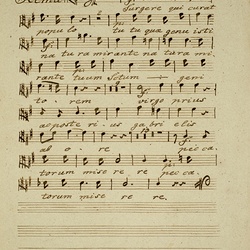 Surgere qui curat
populo tu tu quæ genuisti
natura mirante natura mi
rante tuum Sctum geni
torem virgo prius
ac posterius gabrielis
ab ore pecca
torum miserere pecca
torum miserere